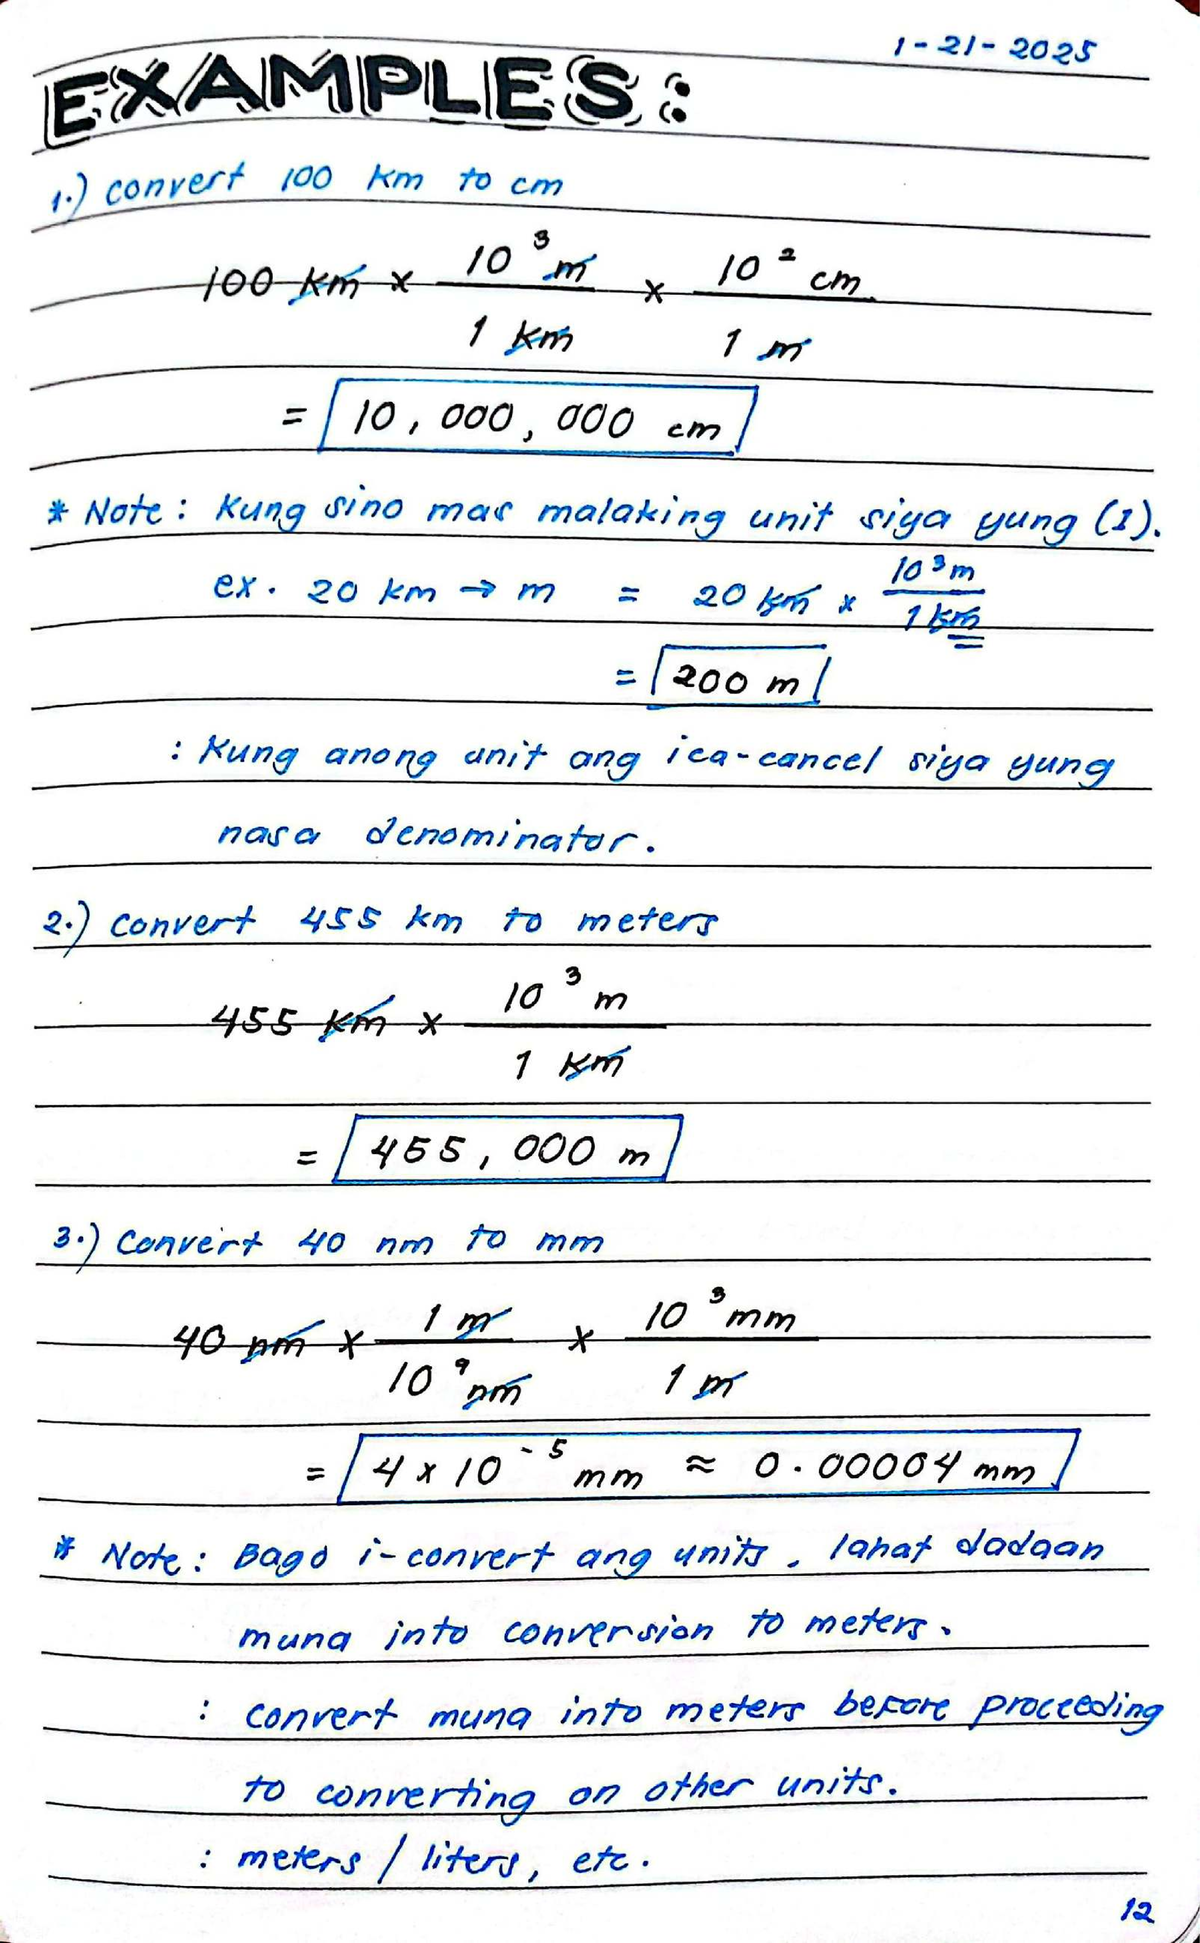 1-21-2025
EXAMPLES:
1.) convert 100 km to cm
100 km x 10³ m / 1 km x 10² cm / 1 m
= 10,000,000 cm
* Note: Kung sino mas malaking unit siya yung (1).
ex. 20 km → m = 20 km x 10³ m / 1 km
= 200 m
: Kung anong unit ang ica-cancel siya yung
nasa denominator.
2.) convert 455 km to meters
455 km x 10³ m / 1 km
= 455,000 m
3.) Convert 40 nm to mm
40 nm x 1 m / 10⁹ nm x 10³ mm / 1 m
= 4 x 10⁻⁵ mm ≈ 0.00004 mm
* Note: Bago i-convert ang units, lahat dadaan
muna into conversion to meters.
: convert muna into meters before proceeding
to converting on other units.
: meters / liters, etc.
12